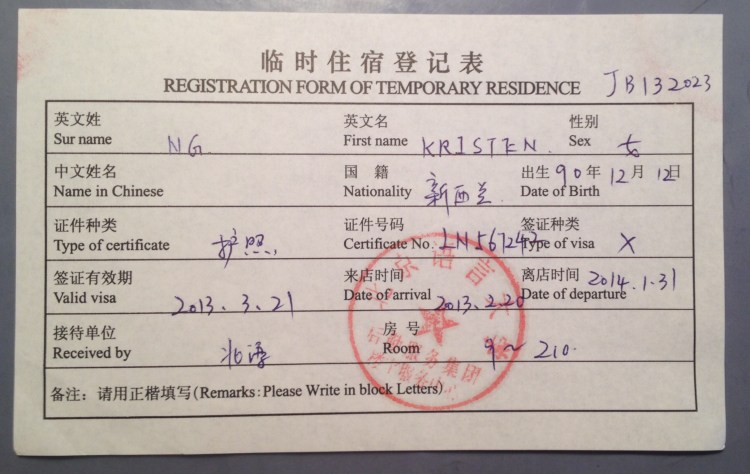 临时住宿登记表
REGISTRATION FORM OF TEMPORARY RESIDENCE JB132023
英文姓 英文名 性别
Sur name NG First name KRISTEN Sex 女
中文姓名 国 籍 出生 90年 12月 12日
Name in Chinese Nationality 新西兰 Date of Birth
证件种类 证件号码 签证种类
Type of certificate 护照 Certificate No. LN567247 Type of visa X
签证有效期 来店时间 离店时间 2014.1.31
Valid visa 2013.3.21 Date of arrival 2013.2.20 Date of departure
接待单位 房 号
Received by 北语 Room 210
备注：请用正楷填写(Remarks:Please Write in block Letters)
北京语言大学
后勤服务集团